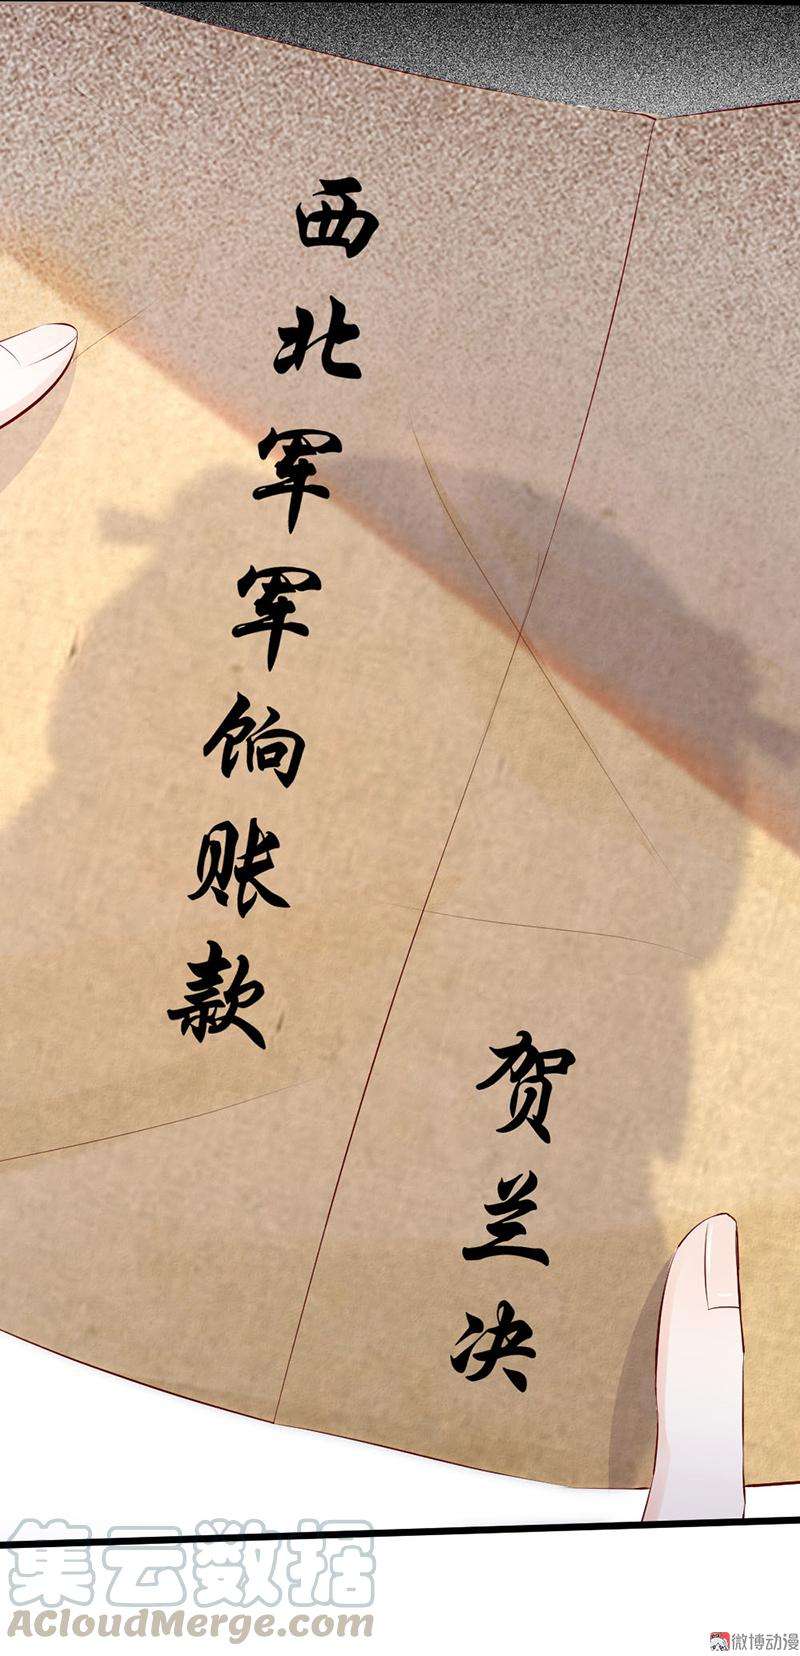 西北军军饷账款
贺兰决
集云数据
ACloudMerge.com
微博动漫